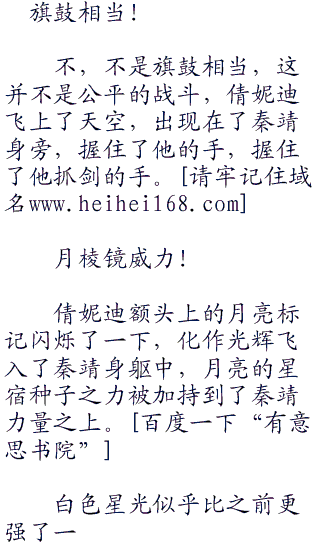 旗鼓相当！
不，不是旗鼓相当，这
并不是公平的战斗，倩妮迪
飞上了天空，出现在了秦靖
身旁，握住了他的手，握住
了他抓剑的手。[请牢记住域
名www.heihei168.com]
月棱镜威力！
倩妮迪额头上的月亮标
记闪烁了一下，化作光辉飞
入了秦靖身躯中，月亮的星
宿种子之力被加持到了秦靖
力量之上。[百度一下“有意
思书院”]
白色星光似乎比之前更
强了一